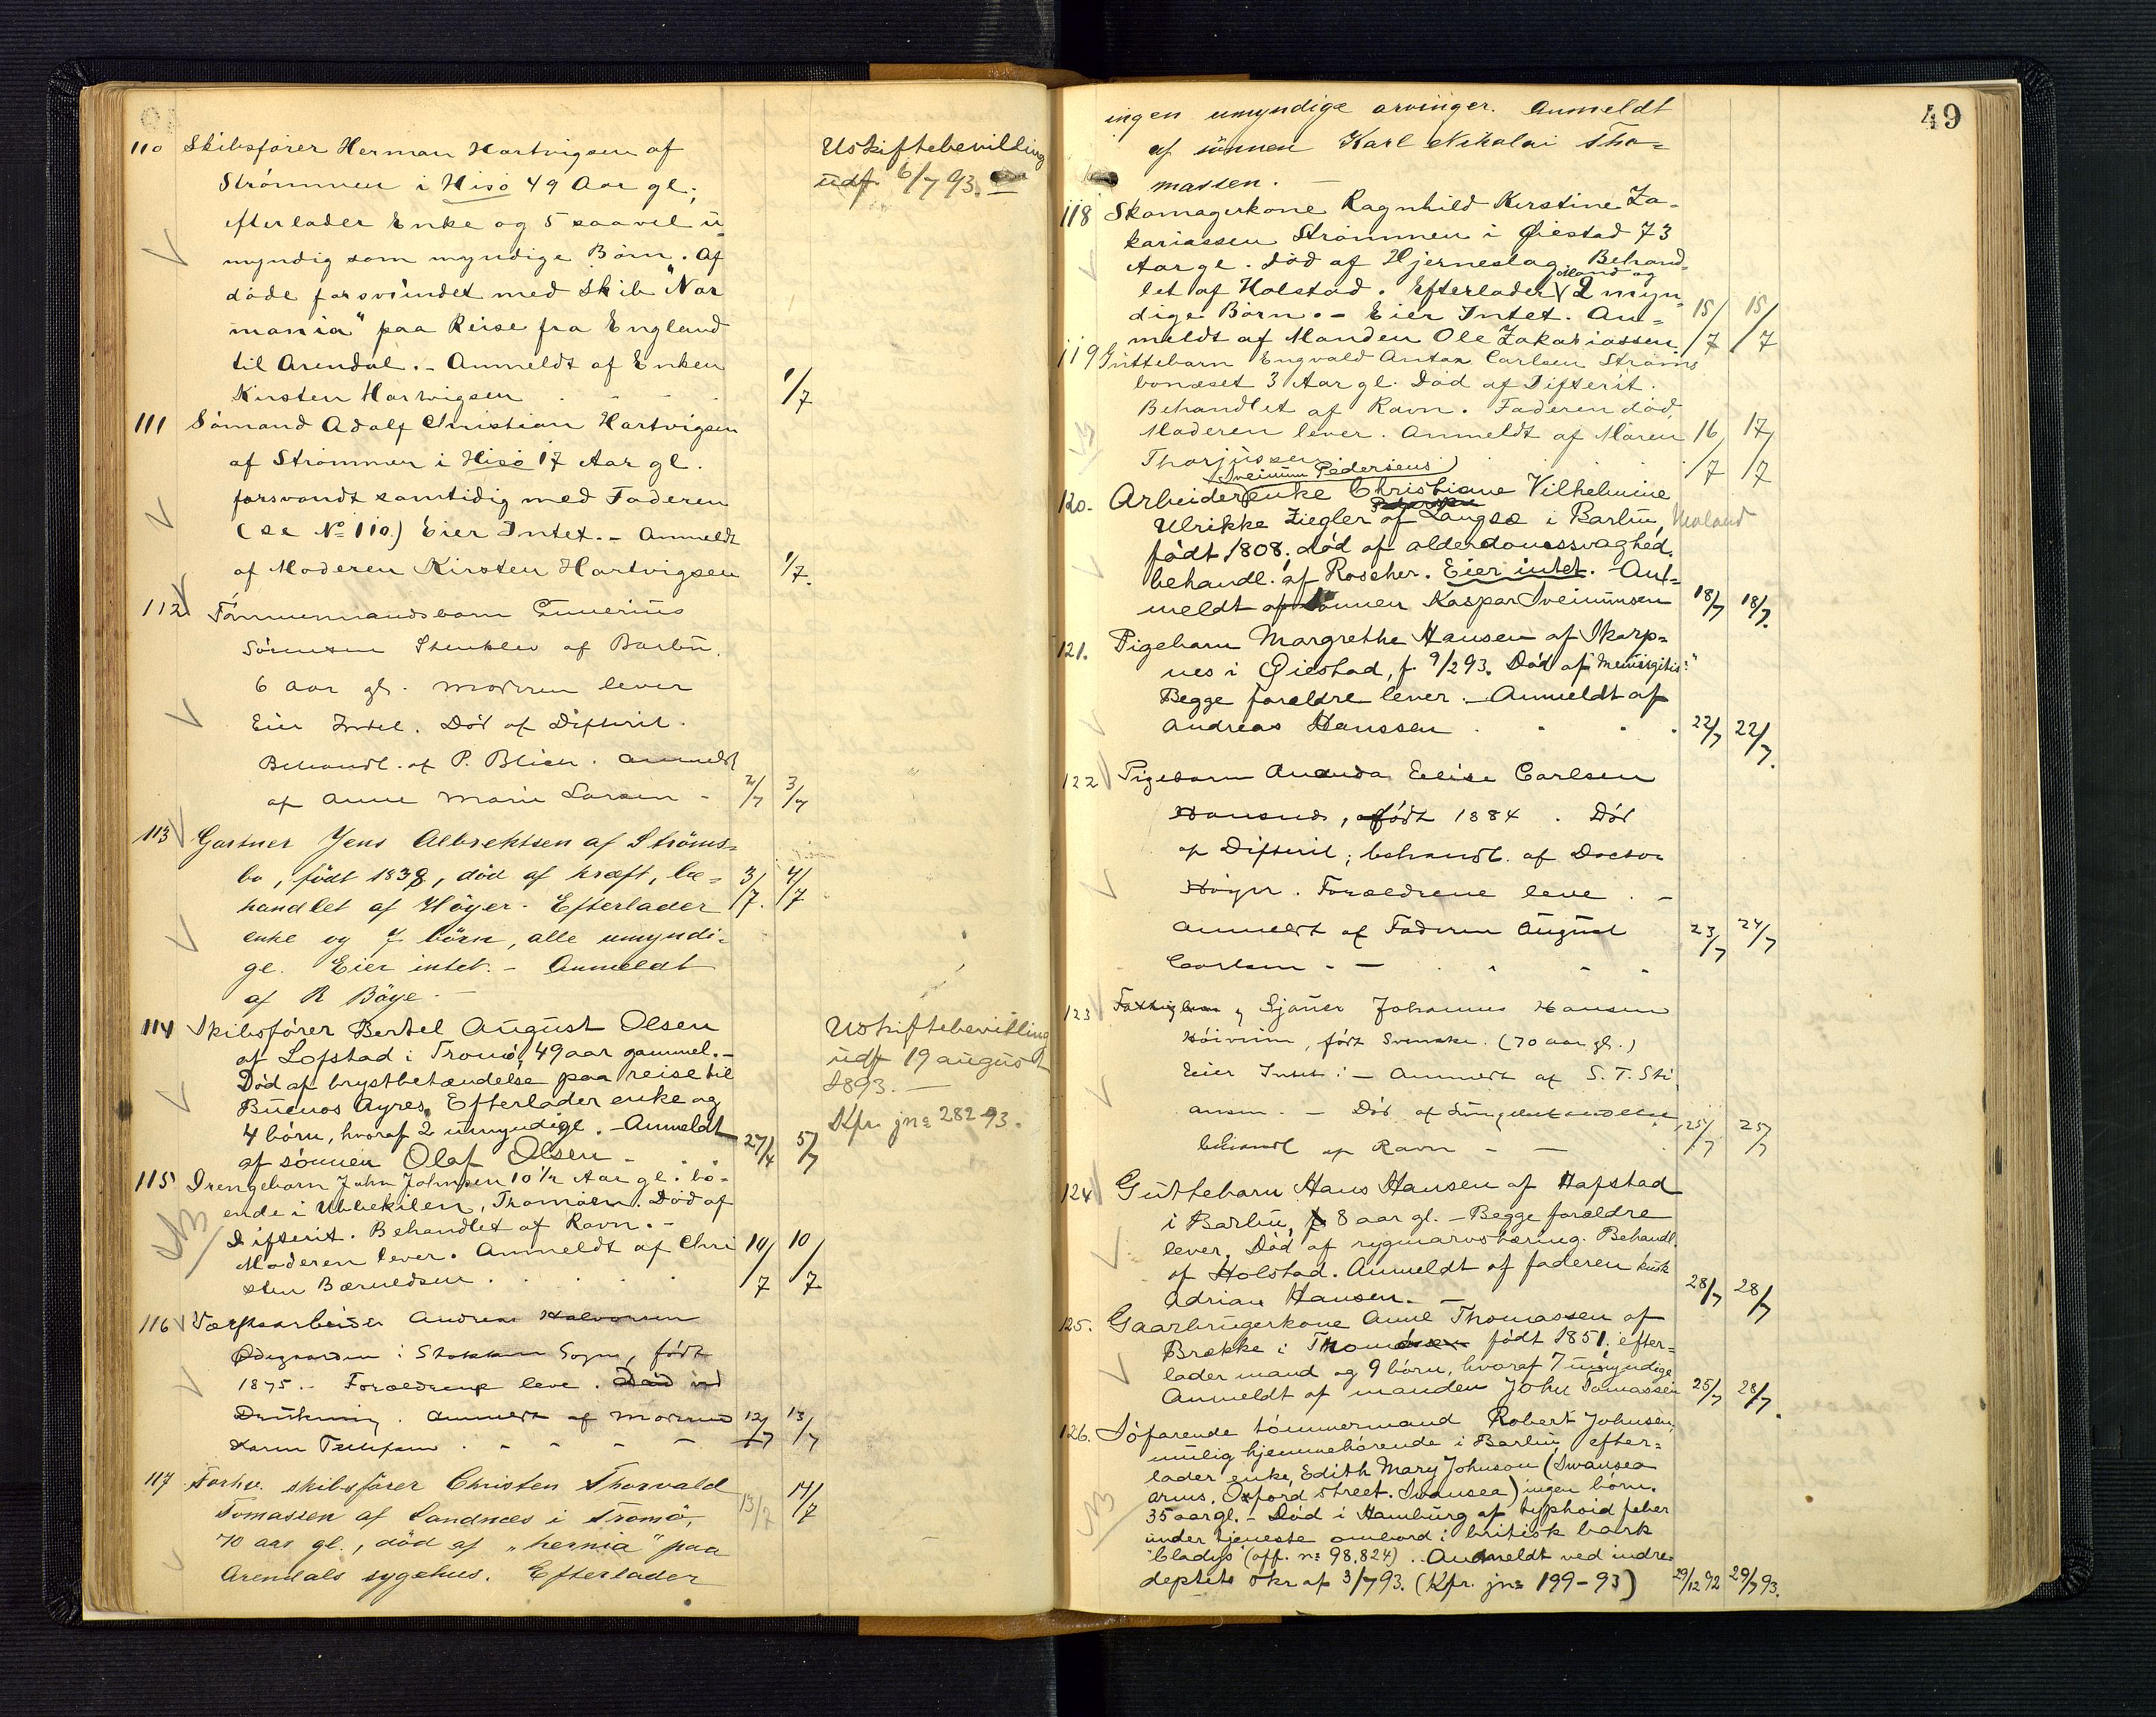 110 Skibsfører Herman Hartvigsen af
Strømmen i Hisö 49 Aar gl;
efterlader Enke og 5 saavel u-
myndig som myndige Börn. Af
døde forsvundet med Skib "Nor
mania" paa Reise fra England
til Arendal. - Anmeldt af Enken
Kirsten Hartvigsen 1/7
Uskiftebevilling
udf. 6/7 93.
111 Sömand Adolf Christian Hartvigsen
af Strømmen i Hisö 17 Aar gl.
forsvandt samtidig med Faderen
(se No 110.) Eier Intet. - Anmeldt
af Moderen Kirsten Hartvigsen 1/7.
112 Tömmermandsbarn
Sörensen af Barbu.
6 aar gl. Moderen lever
Eier Intet. Död af Difterit.
Behandl. af P. Blich. Anmeldt
af Anne Marie Larsen - 2/7 3/7
113 Gartner Jens Albrektsen af Ströms-
bo, født 1838, død af kræft, be-
handlet af Höyer. Efterlader 3/7. 4/7
enke og 7 börn, alle umyndi-
ge. Eier intet. - Anmeldt
af R Böye. -
114 Skibsfører Bertel August Olsen
af Lofstad i Tromö, 49 aar gammel. -
Död af brystbetændelse paa reise til
Buenos Ayres. Efterlader enke og
4 börn, hvoraf 2 umyndige. - Anmeldt
af sönnen Olaf Olsen - 27/4 5/7
Uskiftebevilling
udf 19 august
1893. -
Kfr. jno 282-93.
115 Drengebarn John Johnsen 10 1/2 Aar gl. bo-
ende i Ubbekilen, Tromöen. Död af
Difterit. Behandlet af Ravn. -
Moderen lever. Anmeldt af Chri
sten Bærnedsen . . . . . 10/7 10/7
116 Værftsarbeider Andreas Halvorsen
Ødegaarden i Stokken Sogn, født
1875. - Forældrene leve. Död ved
Drukning. Anmeldt af Moderen
Karen 12/7 13/7
117 Forhv. skibsfører Christen Thorvald
Tomassen af Sandnes i Tromö, 13/7 14/7
70 aar gl., död af „hernia" paa
Arendals sygehus. Efterlader
49
ingen umyndige arvinger. Anmeldt
af sönnen Karl Nikolai Tho-
massen. -
118 Skomagerkone Ragnhild Kirstine Za-
kariassen Strømmen i Øiestad 73
Aar gl. Död af Hjerneslag. Behand-
let af Holstad. Efterlader Mand og 2 myn-
dige Börn. - Eier Intet. An-
meldt af Manden Ole Zakariassen 15/7 15/7
119 Guttebarn Engvald Anton Carlsen Ströms
bonæset 3 Aar gl. Död af Difterit.
Behandlet af Ravn. Faderen död,
Moderen lever. Anmeldt af Maren
Thorjussen 16/7 17/7
(Sveinum Pedersens)
120. Arbeiderenke Christiane Vilhelmine
Ulrikke Ziegler af Langsæ i Barbu,
født 1808. død af alderdomssvaghed.
behandl. af Roscher. Eier intet. - An-
meldt af sönnen Kaspar Sveinumsen 18/7 18/7.
121. Pigebarn Margrethe Hansen af Skarp-
nes i Øiestad, f. 9/2 93. Död af "Meningitis".
Begge forældre lever. - Anmeldt af
Andreas Hanssen . . . . 22/7 22/7.
122 Pigebarn Ananda Elise Carlsen
født 1884. Död
af Difterit; behandl. af Doctor
Höyer. Forældrene leve. -
Anmeldt af Faderen August
Carlsen - - 23/7 24/7
123 Sjouer Johannes Hansen
født Svenske. (70 aar gl.)
Eier Intet. - Anmeldt af S. T. Sti
ansen. - Död af Lungebetændelse,
behandl af Ravn - - 25/7 25/7
124 Guttebarn Hans Hansen af Hafstad
i Barbu, 8 aar gl. - Begge forældre
lever. Död af rygmarvstæring. Behandl.
af Holstad. Anmeldt af faderen kusk
Adrian Hansen. - 28/7 28/7
125. Gaarbrugerkone Anne Thomassen af
Brække i født 1851. efter-
lader mand og 9 börn, hvoraf 7 umyndige
Anmeldt af manden John Tomassen 25/7 28/7.
126. Söfarende tömmermand Robert Johnsen,
mulig hjemmehörende i Barbu, efter-
lader enke, Edith Mary Johnson (Swansea
arms, Oxford street. Swansea) ingen börn.
35 aar gl. - Död i Hamburg af typhoid feber
under tjeneste ombord i britisk bark
"Gladys" (off. no 98,824). - Anmeldt ved indre-
deptets skr af 3/7 93. (Kfr. jno 199-93) 29/12 92 29/7 93.